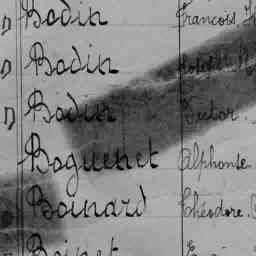 Bodin François
Bodin
Bodin Victor.
Boguenet Alphonse.
Boinard Théodore.